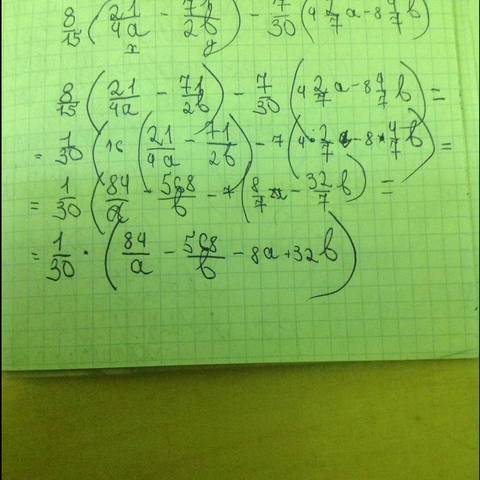 8/15 (21/4a - 71/2b) - 7/30 (4 2/7 a - 8 4/7 b)
x y
8/15 (21/4a - 71/2b) - 7/30 (4 2/7 a - 8 4/7 b) =
= 1/30 (16 (21/4a - 71/2b) - 7 (4 · 2/7 a - 8 · 4/7 b)) =
= 1/30 (84/a - 568/b - 7 (8/7 a - 32/7 b)) =
= 1/30 · (84/a - 568/b - 8a + 32b)